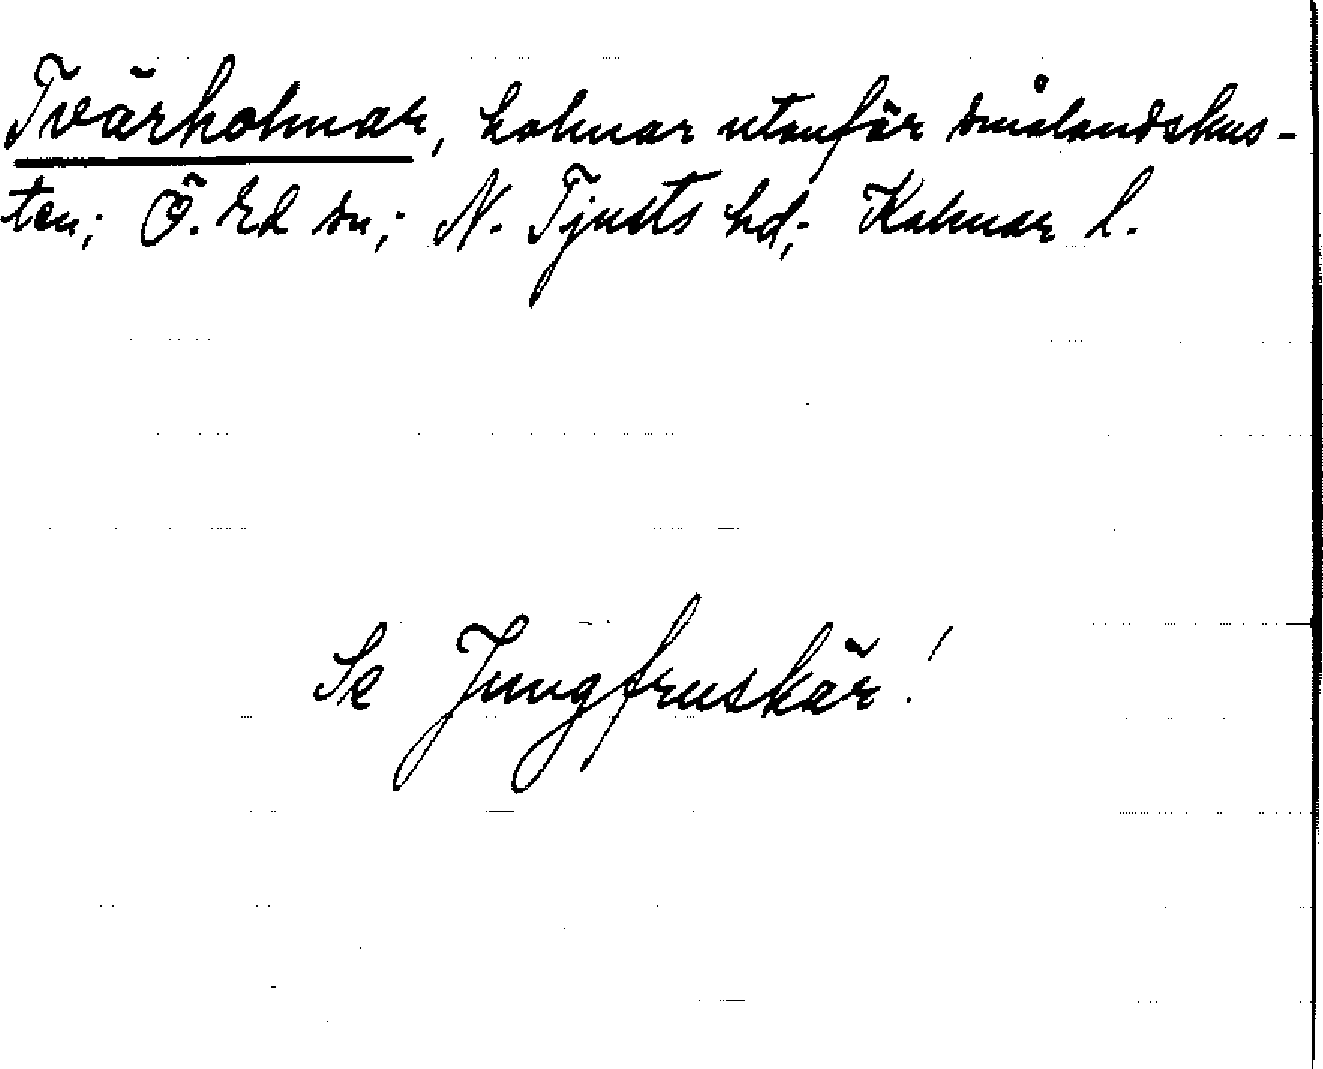 Tvärholmar, holmar utanför smålandskus-
ten; Ö. Ed sn; N. Tjusts hd; Kalmar l.
Se Jungfruskär!